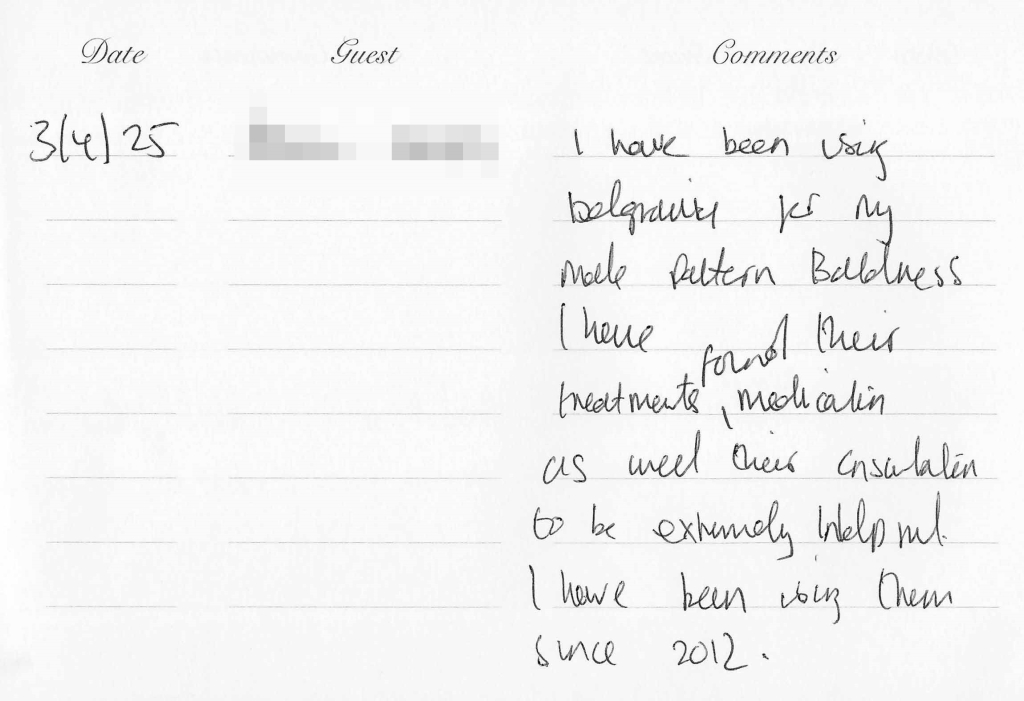 Date Guest Comments
3/4/25 I have been using
belgravia for my
male pattern Baldness
I have found their
treatments, medication
as well their consulation
to be extremely helpful.
I have been using them
since 2012.